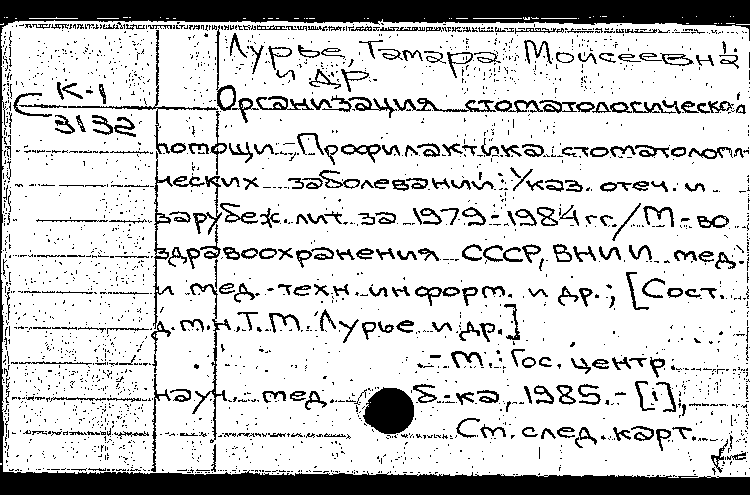 Лурье, Тамара Моисеевна
и др.
К-1
3132
Организация стоматологической
помощи. Профилактика стоматологи-
ческих заболеваний: Указ. отеч. и
зарубеж. лит. за 1979-1984 гг. / М-во
здравоохранения СССР, ВНИИ мед.
и мед.-техн. информ. и др.; [Сост.
д.м.н. Т.М. Лурье и др.]
- М.: Гос. центр.
науч. мед. б-ка, 1985. - [1],
См. след. карт.